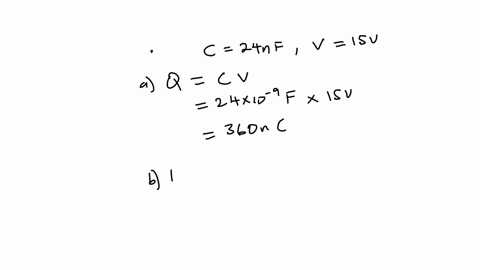 . C = 24nF , V = 15V
a) Q = CV
= 24×10⁻⁹ F × 15V
= 360n C
b) I